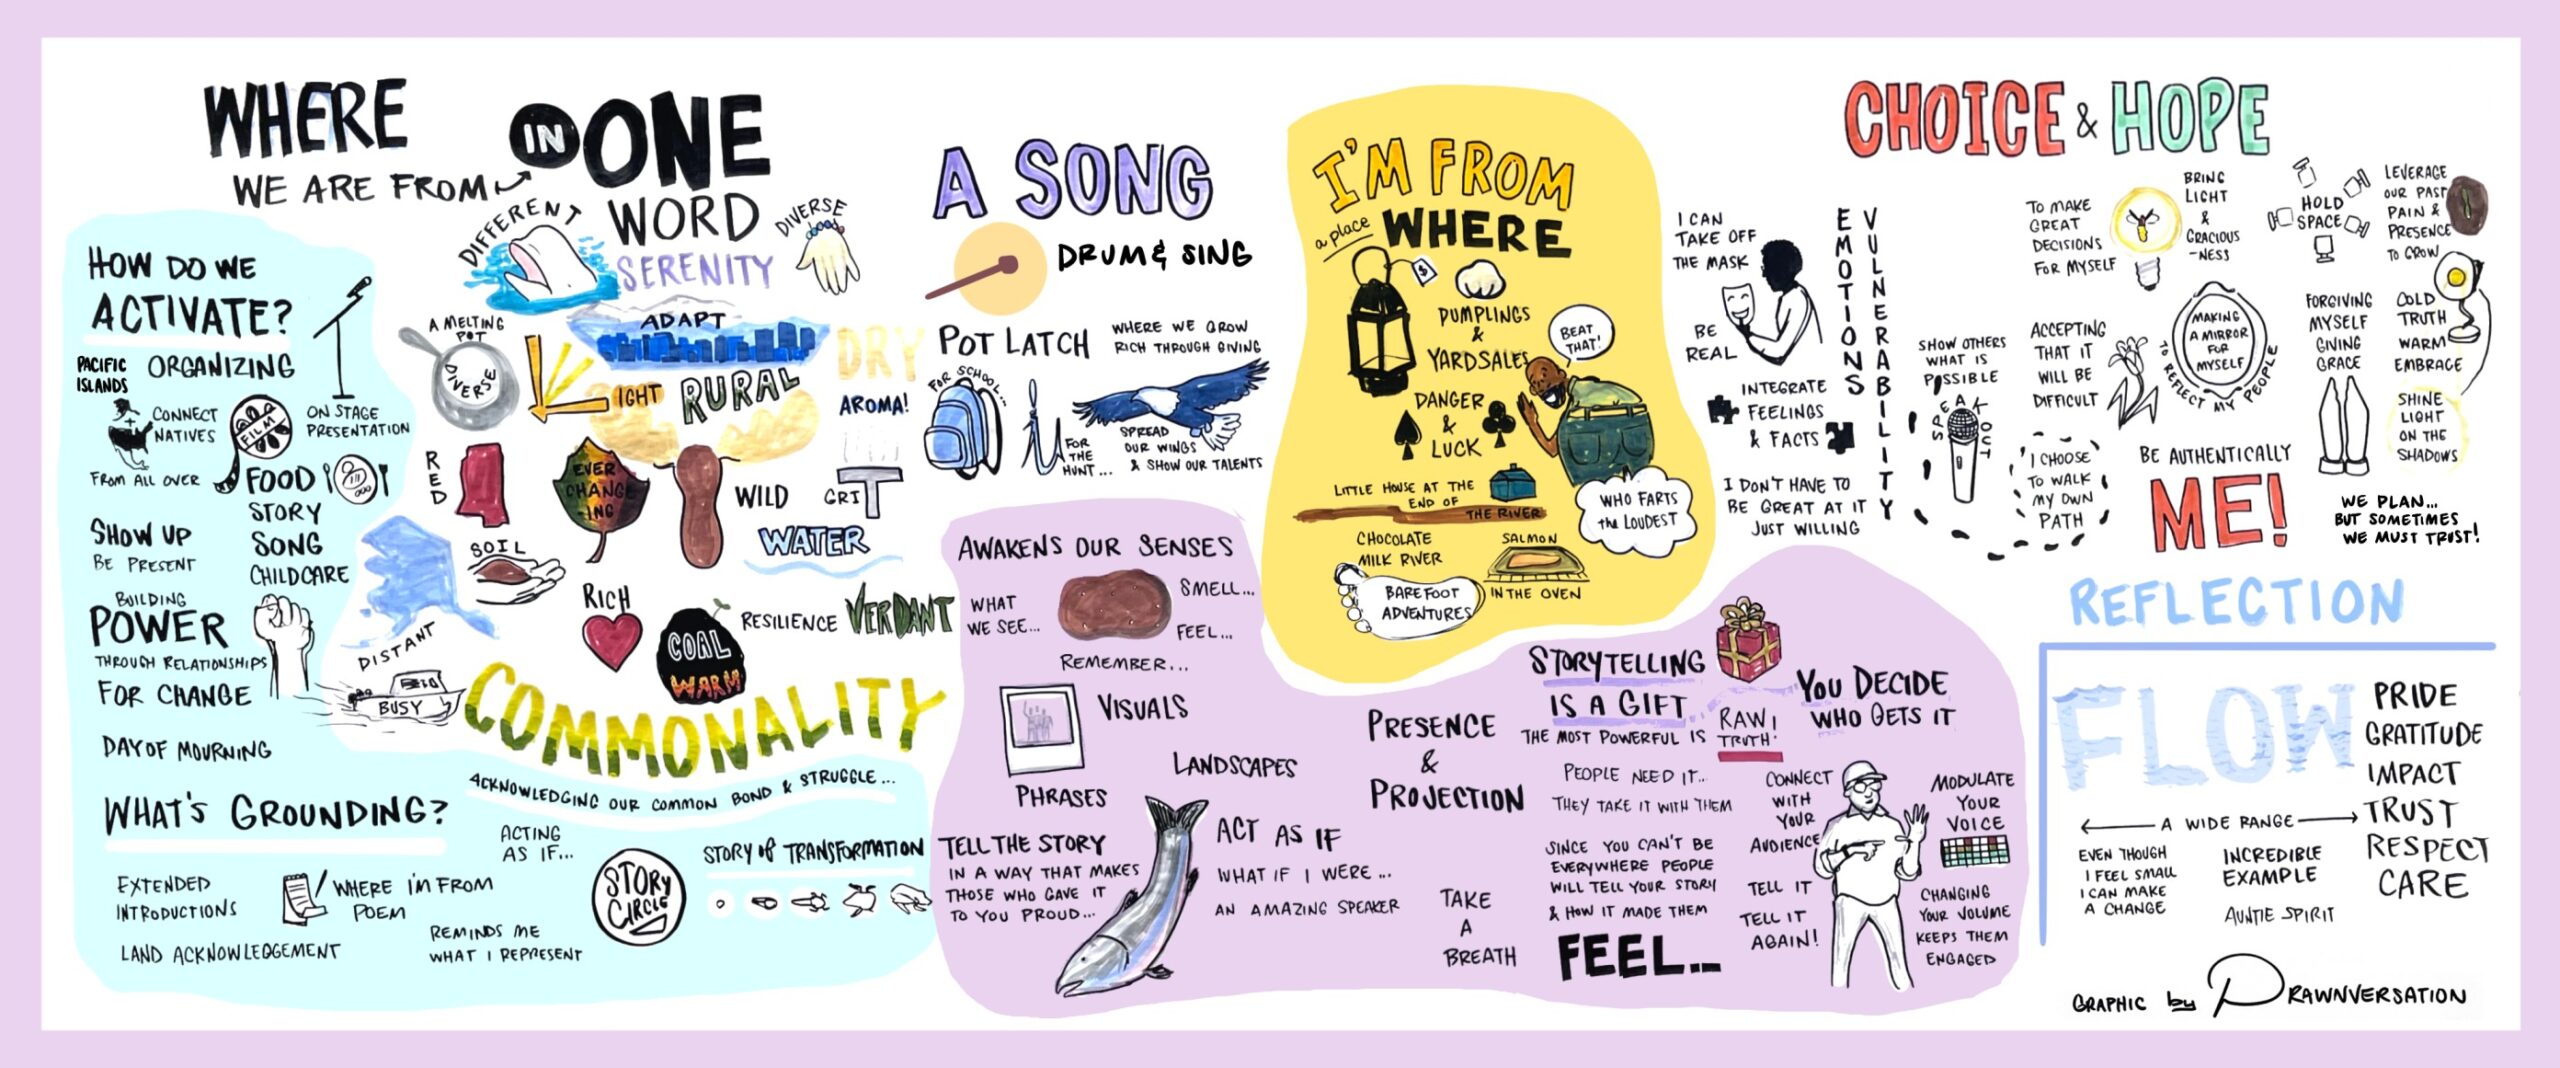 WHERE
WE ARE FROM
IN ONE
WORD
DIFFERENT
DIVERSE
SERENITY
A MELTING
POT
DIVERSE
ADAPT
DRY
LIGHT
RURAL
AROMA!
RED
EVER
CHANG
-ING
WILD
GRIT
WATER
SOIL
RICH
COAL
WARM
RESILIENCE
VERDANT
DISTANT
BUSY
COMMONALITY
ACKNOWLEDGING OUR COMMON BOND & STRUGGLE...
HOW DO WE
ACTIVATE?
PACIFIC
ISLANDS
ORGANIZING
CONNECT
NATIVES
FROM ALL OVER
FILM
ON STAGE
PRESENTATION
FOOD
STORY
SONG
CHILDCARE
SHOW UP
BE PRESENT
BUILDING
POWER
THROUGH RELATIONSHIPS
FOR CHANGE
DAY OF MOURNING
WHAT'S GROUNDING?
ACTING
AS IF...
EXTENDED
INTRODUCTIONS
WHERE I'M FROM
POEM
LAND ACKNOWLEDGEMENT
REMINDS ME
WHAT I REPRESENT
STORY
CIRCLE
STORY of TRANSFORMATION
A SONG
DRUM & SING
POT LATCH
WHERE WE GROW
RICH THROUGH GIVING
FOR SCHOOL...
FOR
THE
HUNT...
SPREAD
OUR WINGS
& SHOW OUR TALENTS
AWAKENS OUR SENSES
WHAT
WE SEE...
SMELL...
FEEL...
REMEMBER...
VISUALS
LANDSCAPES
PHRASES
TELL THE STORY
IN A WAY THAT MAKES
THOSE WHO GAVE IT
TO YOU PROUD...
ACT AS IF
WHAT IF I WERE...
AN AMAZING SPEAKER
PRESENCE
&
PROJECTION
TAKE
A
BREATH
STORYTELLING
IS A GIFT
THE MOST POWERFUL IS
RAW
TRUTH!
PEOPLE NEED IT...
THEY TAKE IT WITH THEM
SINCE YOU CAN'T BE
EVERYWHERE PEOPLE
WILL TELL YOUR STORY
& HOW IT MADE THEM
FEEL...
YOU DECIDE
WHO GETS IT
CONNECT
WITH
YOUR
AUDIENCE
TELL IT
TELL IT
AGAIN!
MODULATE
YOUR
VOICE
CHANGING
YOUR VOLUME
KEEPS THEM
ENGAGED
I'M FROM
a place WHERE
$
DUMPLINGS
&
YARDSALES
BEAT
THAT!
DANGER
&
LUCK
LITTLE HOUSE AT THE
END OF
THE RIVER
WHO FARTS
the LOUDEST
CHOCOLATE
MILK RIVER
SALMON
IN THE OVEN
BAREFOOT
ADVENTURES
CHOICE & HOPE
I CAN
TAKE OFF
THE MASK
BE
REAL
EMOTIONS
VULNERABILITY
INTEGRATE
FEELINGS
& FACTS
I DON'T HAVE TO
BE GREAT AT IT
JUST WILLING
SHOW OTHERS
WHAT IS
POSSIBLE
SPEAK
OUT
TO MAKE
GREAT
DECISIONS
FOR MYSELF
BRING
LIGHT
&
GRACIOUS
-NESS
ACCEPTING
THAT IT
WILL BE
DIFFICULT
MAKING
A MIRROR
FOR
MYSELF
TO REFLECT MY PEOPLE
I CHOOSE
TO WALK
MY OWN
PATH
HOLD
SPACE
LEVERAGE
OUR PAST
PAIN &
PRESENCE
TO GROW
FORGIVING
MYSELF
GIVING
GRACE
COLD
TRUTH
WARM
EMBRACE
SHINE
LIGHT
ON THE
SHADOWS
BE AUTHENTICALLY
ME!
WE PLAN...
BUT SOMETIMES
WE MUST TRUST!
REFLECTION
FLOW
A WIDE RANGE
EVEN THOUGH
I FEEL SMALL
I CAN MAKE
A CHANGE
INCREDIBLE
EXAMPLE
AUNTIE SPIRIT
PRIDE
GRATITUDE
IMPACT
TRUST
RESPECT
CARE
GRAPHIC by DRAWNVERSATION